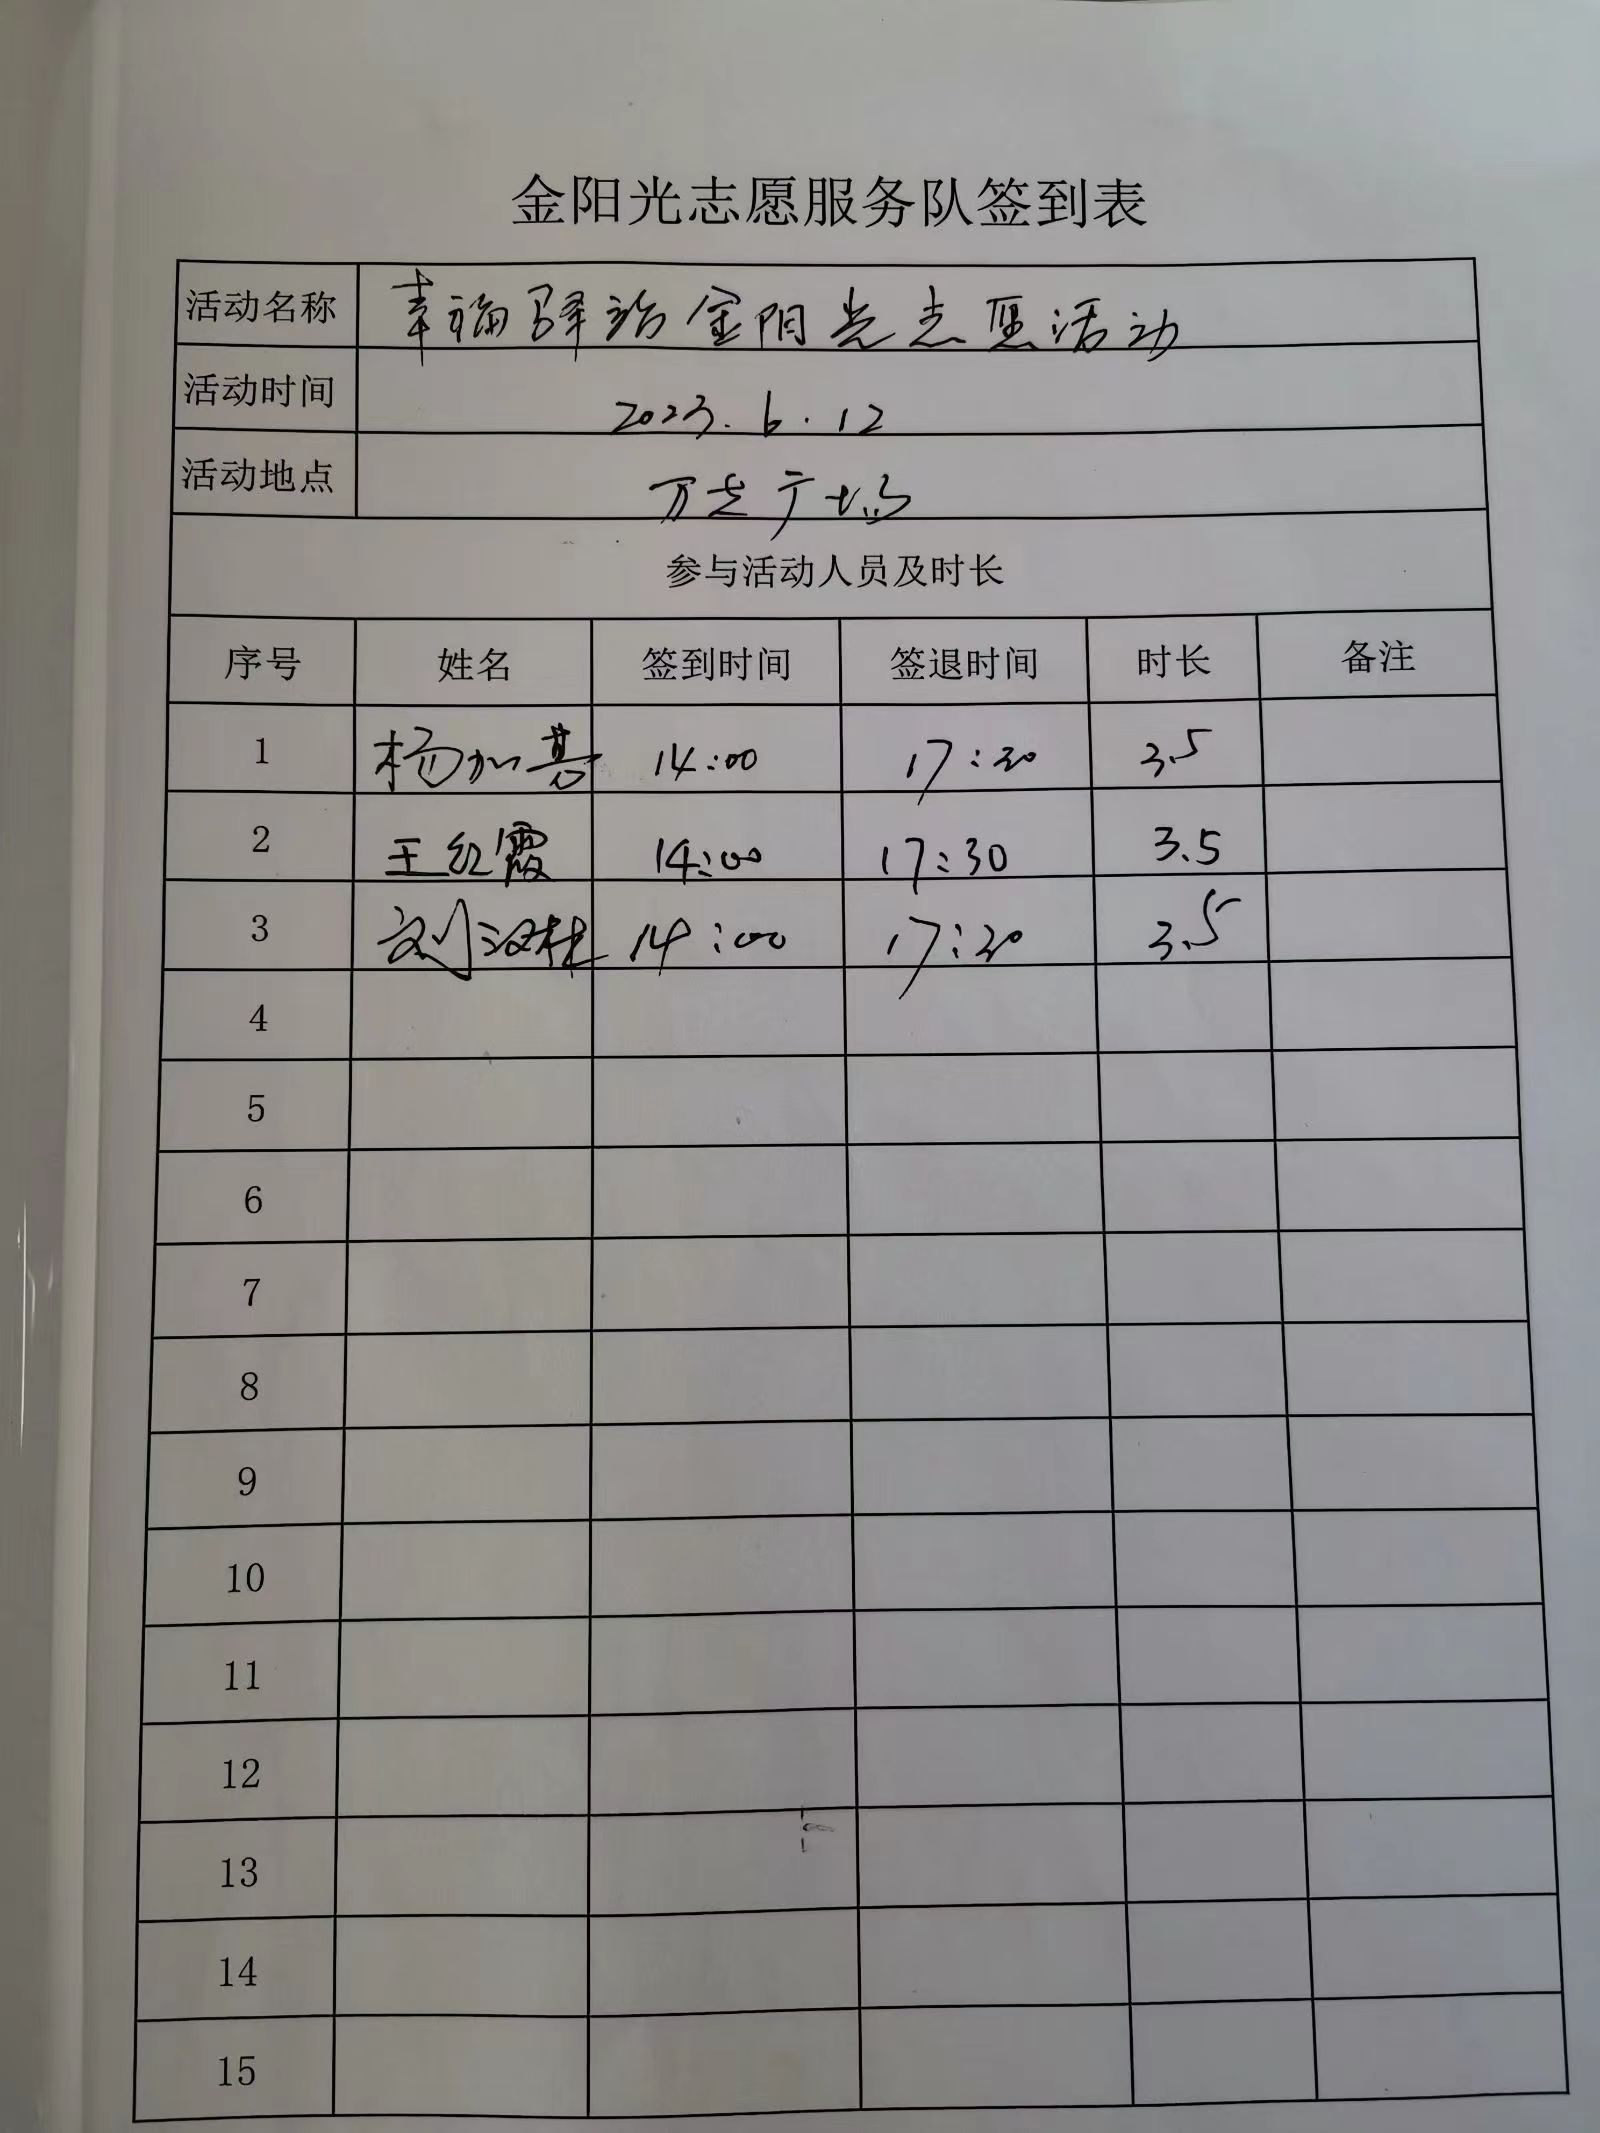 金阳光志愿服务队签到表
活动名称 幸福驿站金阳光志愿活动
活动时间 2023.6.12
活动地点 万达广场
参与活动人员及时长
序号 姓名 签到时间 签退时间 时长 备注
1 杨加 14:00 17:30 3.5
2 王红霞 14:00 17:30 3.5
3 刘汉桂 14:00 17:30 3.5
4
5
6
7
8
9
10
11
12
13
14
15